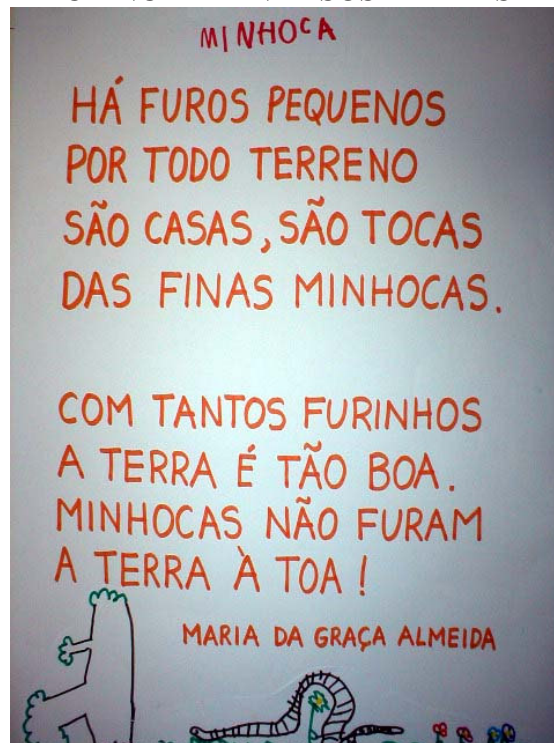 MINHOCA
HÁ FUROS PEQUENOS
POR TODO TERRENO
SÃO CASAS, SÃO TOCAS
DAS FINAS MINHOCAS.
COM TANTOS FURINHOS
A TERRA É TÃO BOA.
MINHOCAS NÃO FURAM
A TERRA À TOA!
MARIA DA GRAÇA ALMEIDA